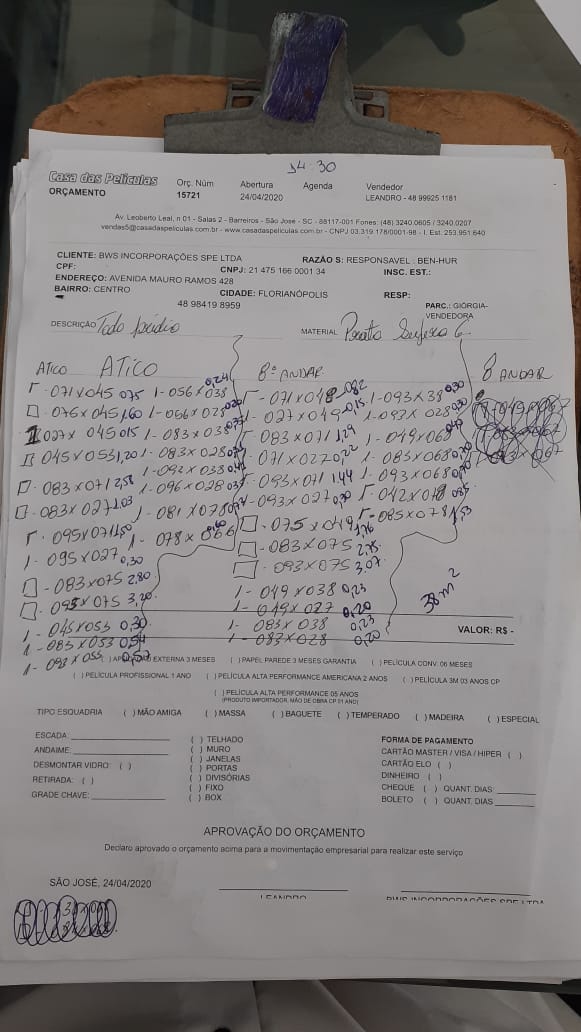 14:30
Casa das Películas
ORÇAMENTO
Orç. Núm
15721
Abertura
24/04/2020
Agenda
Vendedor
LEANDRO - 48 99925 1181
Av. Leoberto Leal, n 01 - Salas 2 - Barreiros - São José - SC - 88117-001 Fones: (48) 3240.0605 / 3240.0207
vendas5@casadaspeliculas.com.br - www.casadaspeliculas.com.br - CNPJ 03.319.178/0001-98 - I. Est. 253.951.640
CLIENTE: BWS INCORPORAÇÕES SPE LTDA
RAZÃO S: RESPONSAVEL : BEN-HUR
CPF:
CNPJ: 21 475 166 0001 34
INSC. EST.:
ENDEREÇO: AVENIDA MAURO RAMOS 428
BAIRRO: CENTRO
CIDADE: FLORIANÓPOLIS
RESP:
48 98419 8959
PARC.: GIÓRGIA-
VENDEDORA
DESCRIÇÃO Todo prédio
MATERIAL
ATICO ATICO
8º ANDAR
8 ANDAR
071x045 075 1-056x038 0,24
071x048 082
1-093x38 0,30
076x045 1,60 1-056x028
1-027x049 0,15
1-093x028 0,30
027x 045 015 1-083x038
083x071 1,29
1-049x068
045x053 1,20 1-083x028
071x027 0,22
1-083x068
1-092x038
083x071 2,58
1-096x028
093x071 1,44
1-093x068
083x027 1,03
1-081x078
093x027 0,30
095x071 1,50 1-078x066
075x049 1,76
085x078 1,53
1-095x027 0,30
083x075 2,75
083x075 2,80
093x075 3,07
095x075 3,20
1-049x038 0,23
38m²
1-045x053 0,30
1-049x027 0,20
1-083x053 0,54
1-083x038 0,23
VALOR: R$ -
1-093x053 0,57
1-083x028 0,20
EXTERNA 3 MESES ( ) PAPEL PAREDE 3 MESES GARANTIA ( ) PELÍCULA CONV. 06 MESES
( ) PELÍCULA PROFISSIONAL 1 ANO ( ) PELÍCULA ALTA PERFORMANCE AMERICANA 2 ANOS ( ) PELÍCULA 3M 03 ANOS CP
( ) PELÍCULA ALTA PERFORMANCE 05 ANOS
(PRODUTO IMPORTADOR, MÃO DE OBRA CP 01 ANO)
TIPO ESQUADRIA ( ) MÃO AMIGA ( ) MASSA ( ) BAGUETE ( ) TEMPERADO ( ) MADEIRA ( ) ESPECIAL
ESCADA:
ANDAIME:
DESMONTAR VIDRO: ( )
RETIRADA: ( )
GRADE CHAVE:
( ) TELHADO
( ) MURO
( ) JANELAS
( ) PORTAS
( ) DIVISÓRIAS
( ) FIXO
( ) BOX
FORMA DE PAGAMENTO
CARTÃO MASTER / VISA / HIPER ( )
CARTÃO ELO ( )
DINHEIRO ( )
CHEQUE ( ) QUANT. DIAS:
BOLETO ( ) QUANT. DIAS
APROVAÇÃO DO ORÇAMENTO
Declaro aprovado o orçamento acima para a movimentação empresarial para realizar este serviço
SÃO JOSÉ, 24/04/2020
LEANDRO
BWS INCORPORAÇÕES SPE LTDA